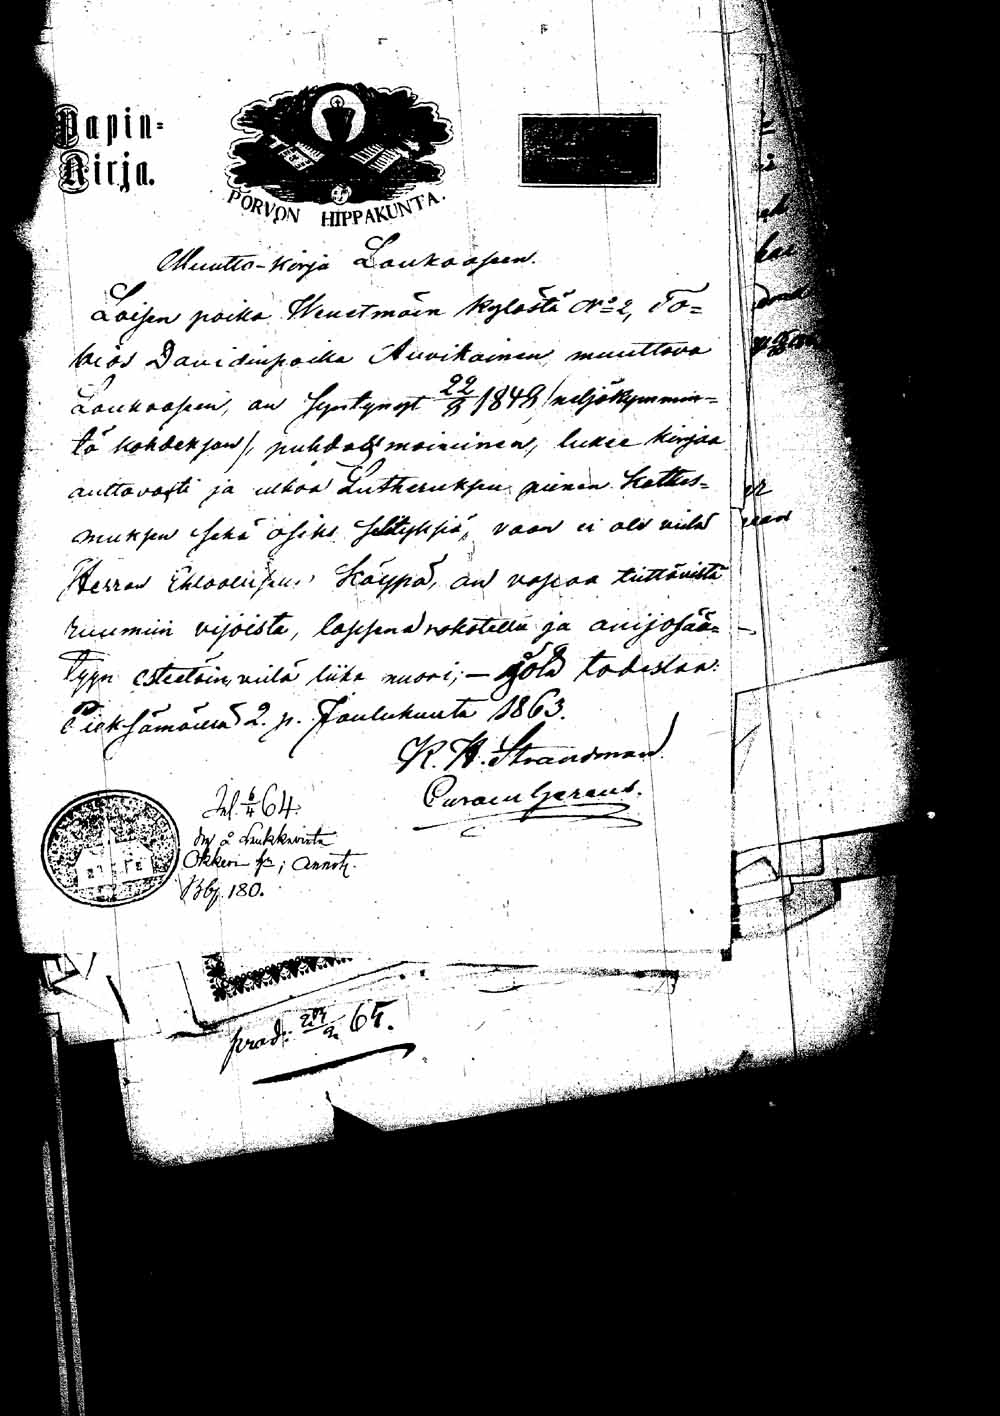 Papin-
Kirja.
PORVON HIPPAKUNTA.
Muutto-kirja Laukaaseen.
Loisen poika Wenetmäen kylästä No 2, To=
bias Davidinpoika Auvikainen, muuttava
Laukaaseen, on syntynyt 22/8 1849 /neljäkymmen=
tä yhdeksän/, puhdas maineinen, lukee kirjaa
auttavasti ja ulkoa Lutheruksen vienen Katkis=
muksen sekä osiks selityksiä, vaan ei ole vielä
Herran Ehtoollisella käypä, on vapaa tarttuvista
ruumiin vijoista, lapsena rokotettu ja avijosää=
tyyn esteetöin, vielä liika nuori; — jota todistaa:
Pieksämäellä 2. p. Joulukuuta 1863.
K. H. Strandman
Curam Gerens.
Inl. 6/4 64.
Okkeri
Bbg. 180.
prod: 64.